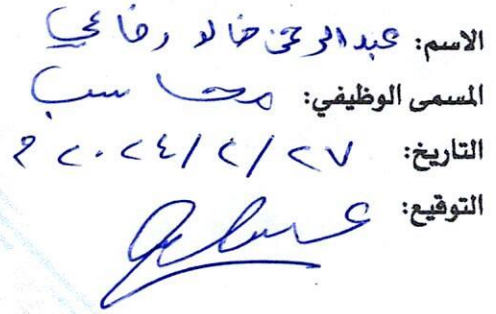 الاسم: عبدالرحمن خالد رفاعي
المسمى الوظيفي: محاسب
التاريخ: ٢٧/٢/٢٠٢٤م
التوقيع: